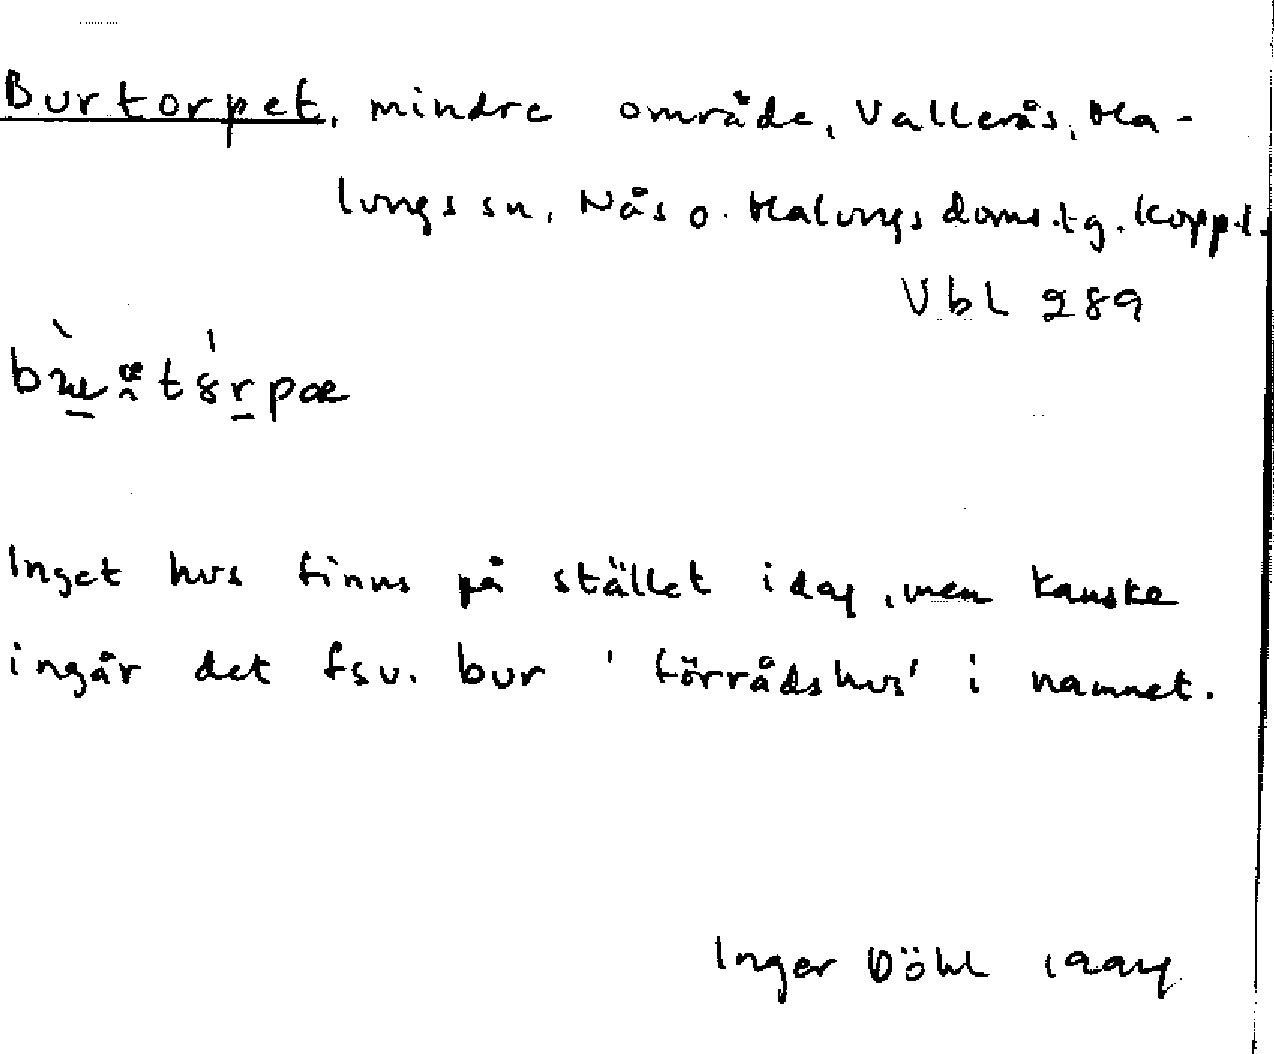 Burtorpet, mindre område, Vallerås, Ma-
lungs sn, Nås o. Malungs doms.tg. Kopp.l.
Vbl 289
Inget hus finns på stället idag, men kanske
ingår det fsv. bur 'förrådshus' i namnet.
Inger Döhl